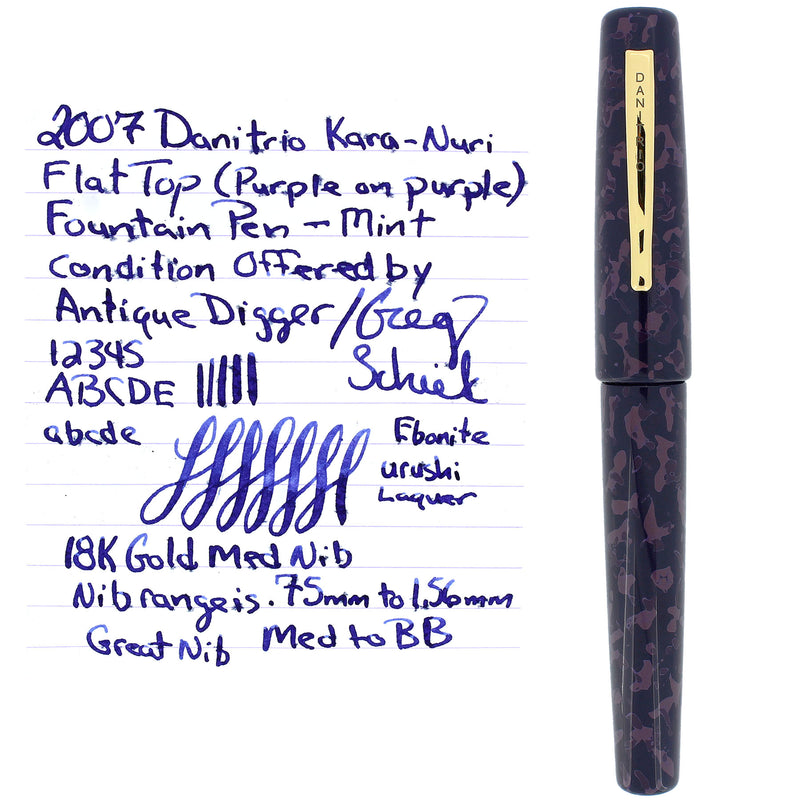 2007 Danitrio Kara-Nuri
Flat Top (Purple on purple)
Fountain Pen - Mint
Condition Offered by
Antique Digger/Greg
Schiek
12345
ABCDE
abcde
Ebonite
urushi
Laquer
18K Gold Med Nib
Nib range is .75mm to 1.56mm
Great Nib Med to BB
DANITRIO